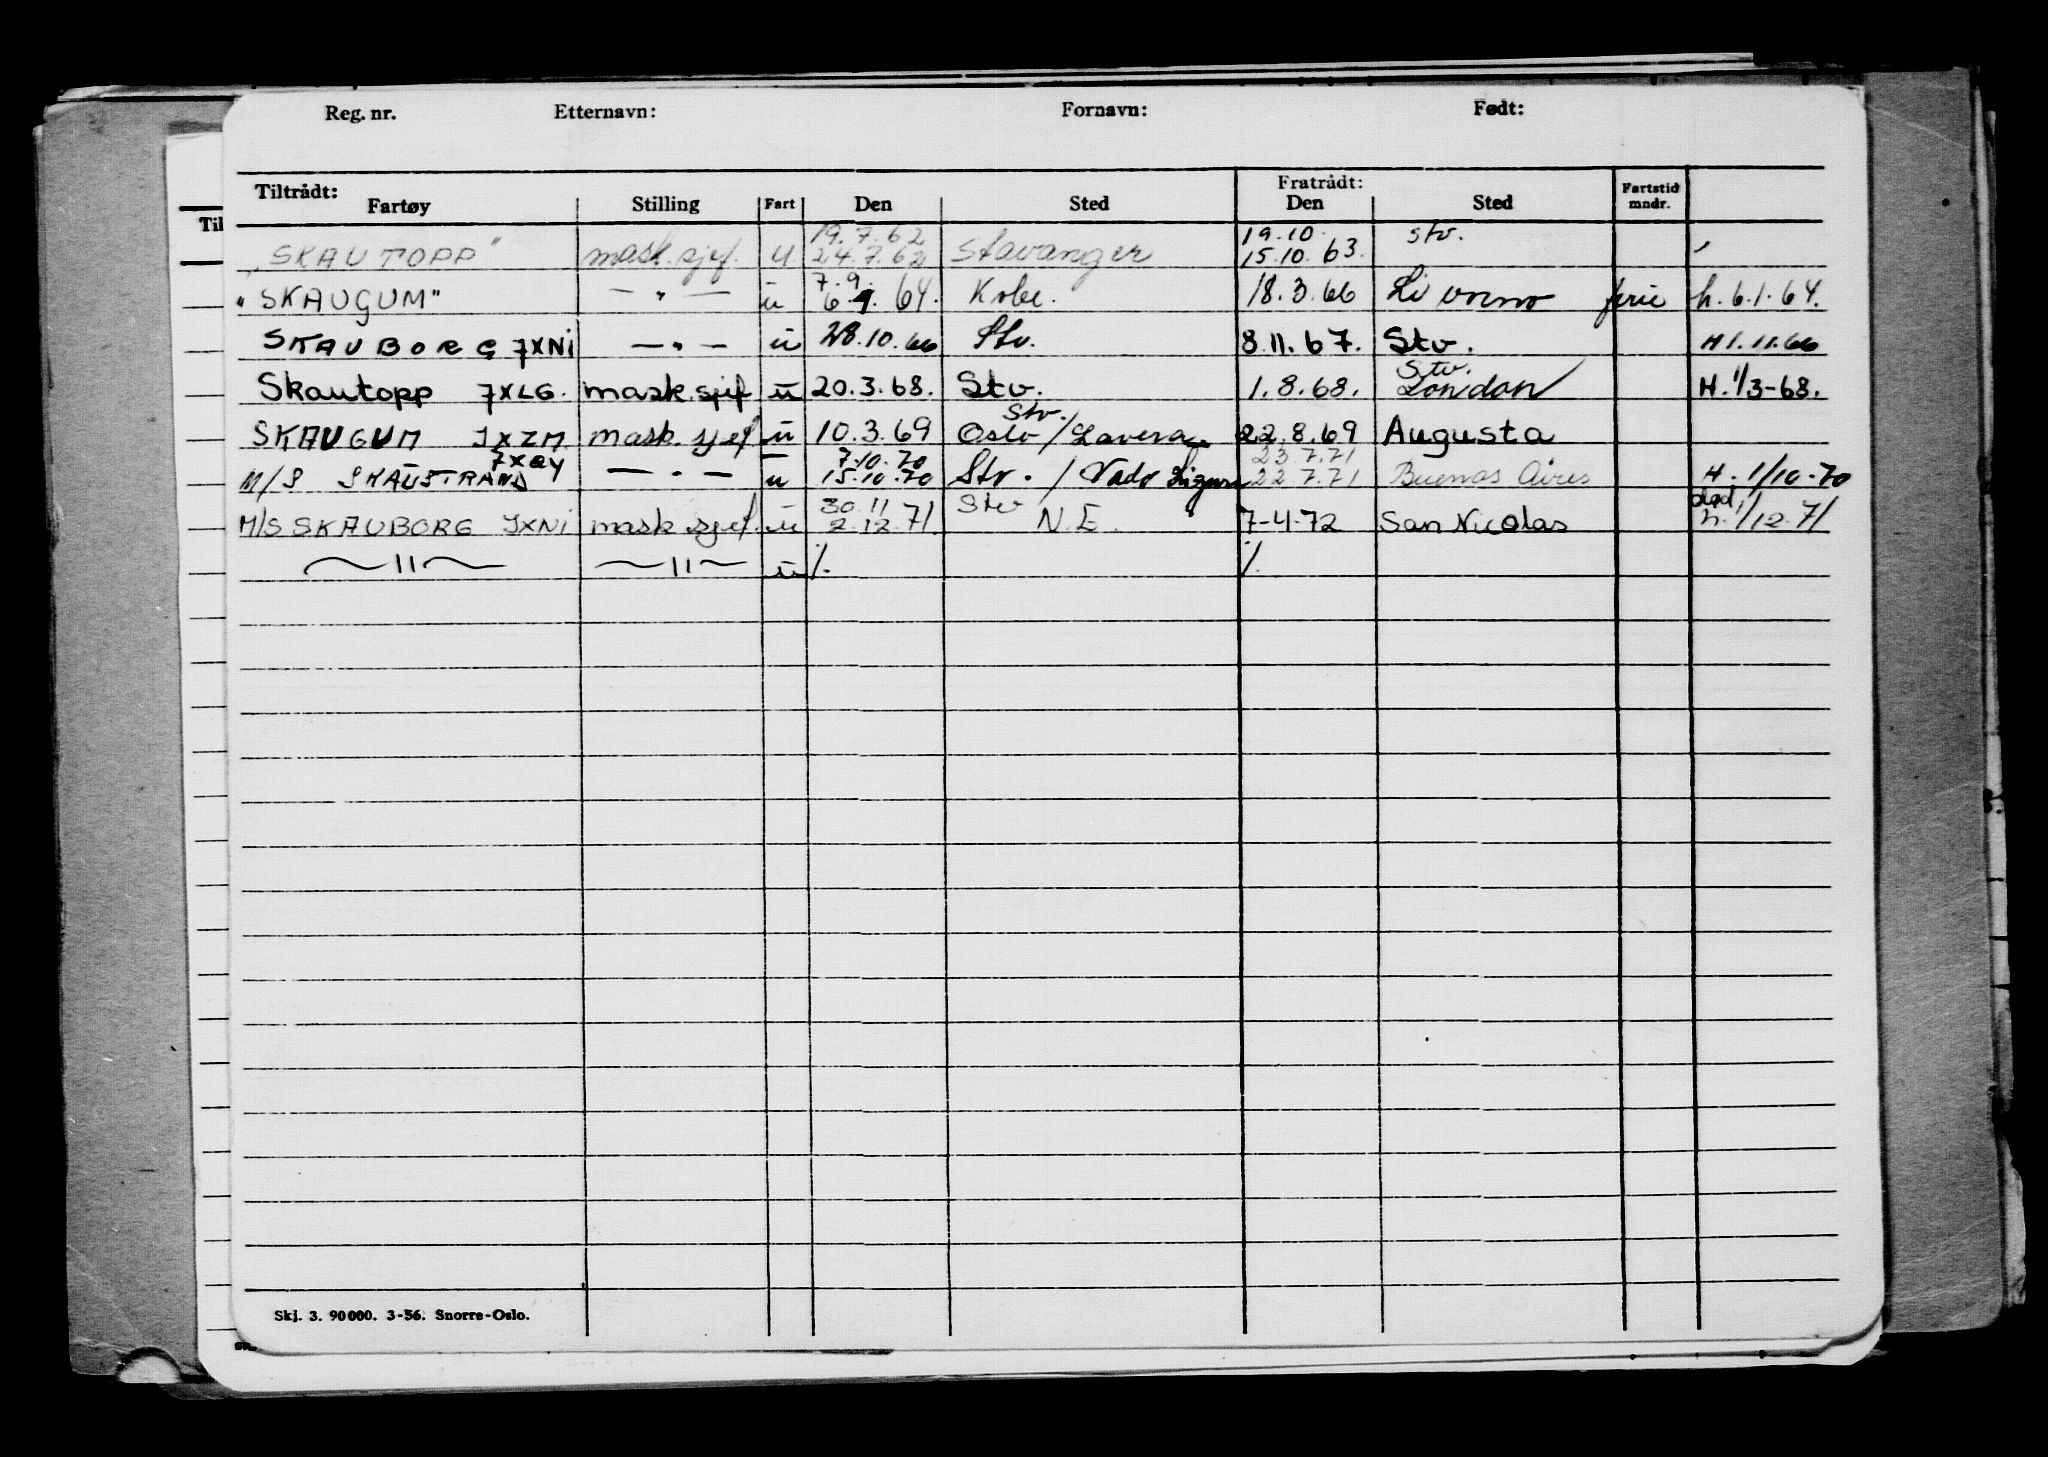 Reg. nr. Etternavn: Fornavn: Født:
Tiltrådt: Fratrådt:
Fartøy Stilling Fart Den Sted Den Sted Fartstid mndr.
Til
19.7.62 19.10. stv.
"SKAUTOPP" mask.sjef. u 24.7.62 Stavanger 15.10.63.
7.9.
"SKAUGUM" — " — u 6.9.64. Kobe. 18.3.66 Livorno ferie h.6.1.64.
SKAUBORG JXNI — " — u 28.10.66 Stv. 8.11.67. Stv. H 1.11.66
Stv.
Skautopp JXLG. mask.sjef u 20.3.68. Stv. 1.8.68. London H. 1/3-68.
Stv.
SKAUGUM JXZM mask.sjef u 10.3.69 Oslo/Lavera 22.8.69 Augusta
7.10.70 23 7.71
M/S SKAUSTRAND JXQY — " — u 15.10.70 Stv. / Vado Ligure 22 7.71 Buenos Aires H. 1/10-70
30.11 Stv
M/S SKAUBORG JXNI mask.sjef. u 2.12.71. N.E. 7-4-72 San Nicolas h. 1/12.71
— " — — " — u /. /.
Skj. 3. 90000. 3-56. Snorre-Oslo.